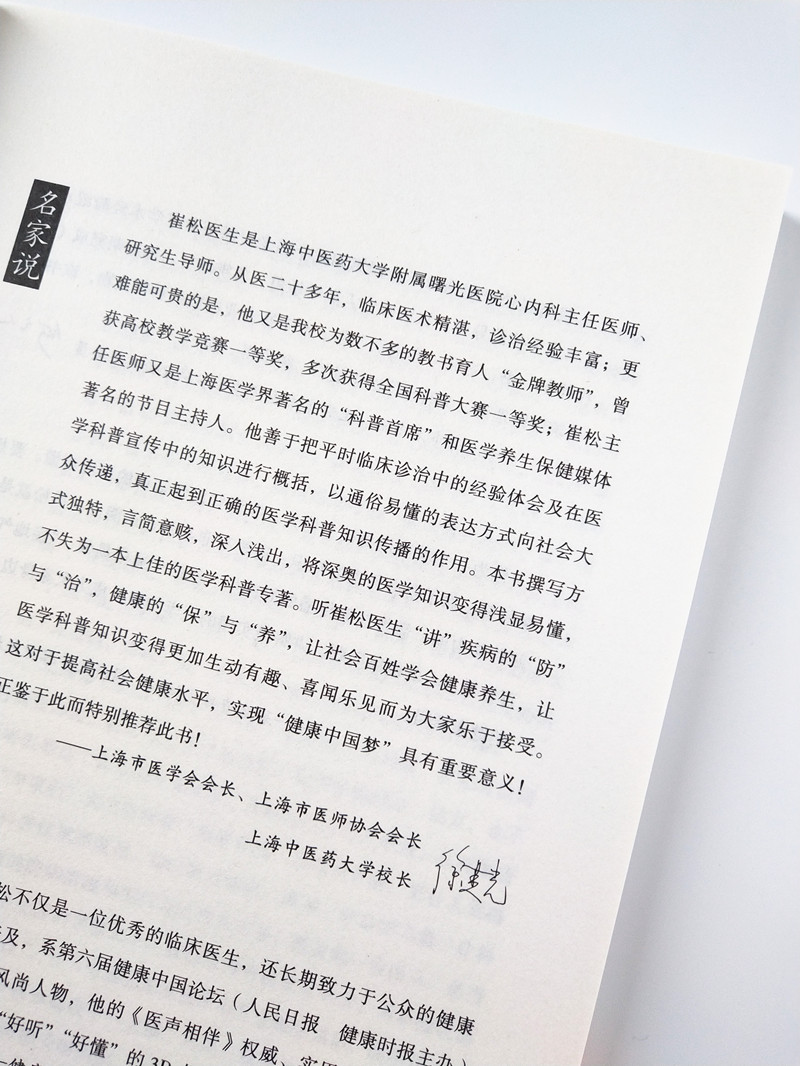 名家说
崔松医生是上海中医药大学附属曙光医院心内科主任医师、
研究生导师。从医二十多年，临床医术精湛，诊治经验丰富；更
难能可贵的是，他又是我校为数不多的教书育人“金牌教师”，曾
获高校教学竞赛一等奖，多次获得全国科普大赛一等奖；崔松主
任医师又是上海医学界著名的“科普首席”和医学养生保健媒体
著名的节目主持人。他善于把平时临床诊治中的经验体会及在医
学科普宣传中的知识进行概括，以通俗易懂的表达方式向社会大
众传递，真正起到正确的医学科普知识传播的作用。本书撰写方
式独特，言简意赅，深入浅出，将深奥的医学知识变得浅显易懂，
不失为一本上佳的医学科普专著。听崔松医生“讲”疾病的“防”
与“治”，健康的“保”与“养”，让社会百姓学会健康养生，让
医学科普知识变得更加生动有趣、喜闻乐见而为大家乐于接受。
这对于提高社会健康水平，实现“健康中国梦”具有重要意义！
正鉴于此而特别推荐此书！
——上海市医学会会长、上海市医师协会会长
上海中医药大学校长 徐建光
松不仅是一位优秀的临床医生，还长期致力于公众的健康
及，系第六届健康中国论坛（人民日报 健康时报主办）
风尚人物，他的《医声相伴》权威、实用
“好听”“好懂”的3D